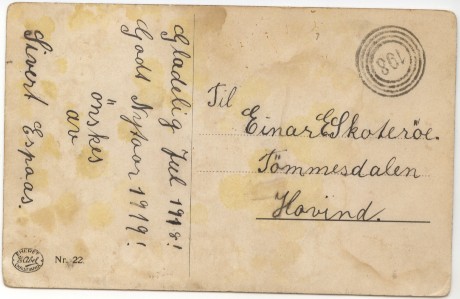 Gladelig Jul 1918!
Godt Nytaar 1919!
önskes
av
Sivert Espaas.
Til
Einar E Skoteröe.
Tömmesdalen
Hovind.
198
Nr. 22